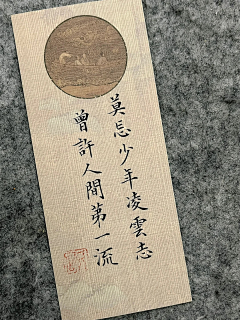 莫忘少年凌雲志
曾許人間第一流